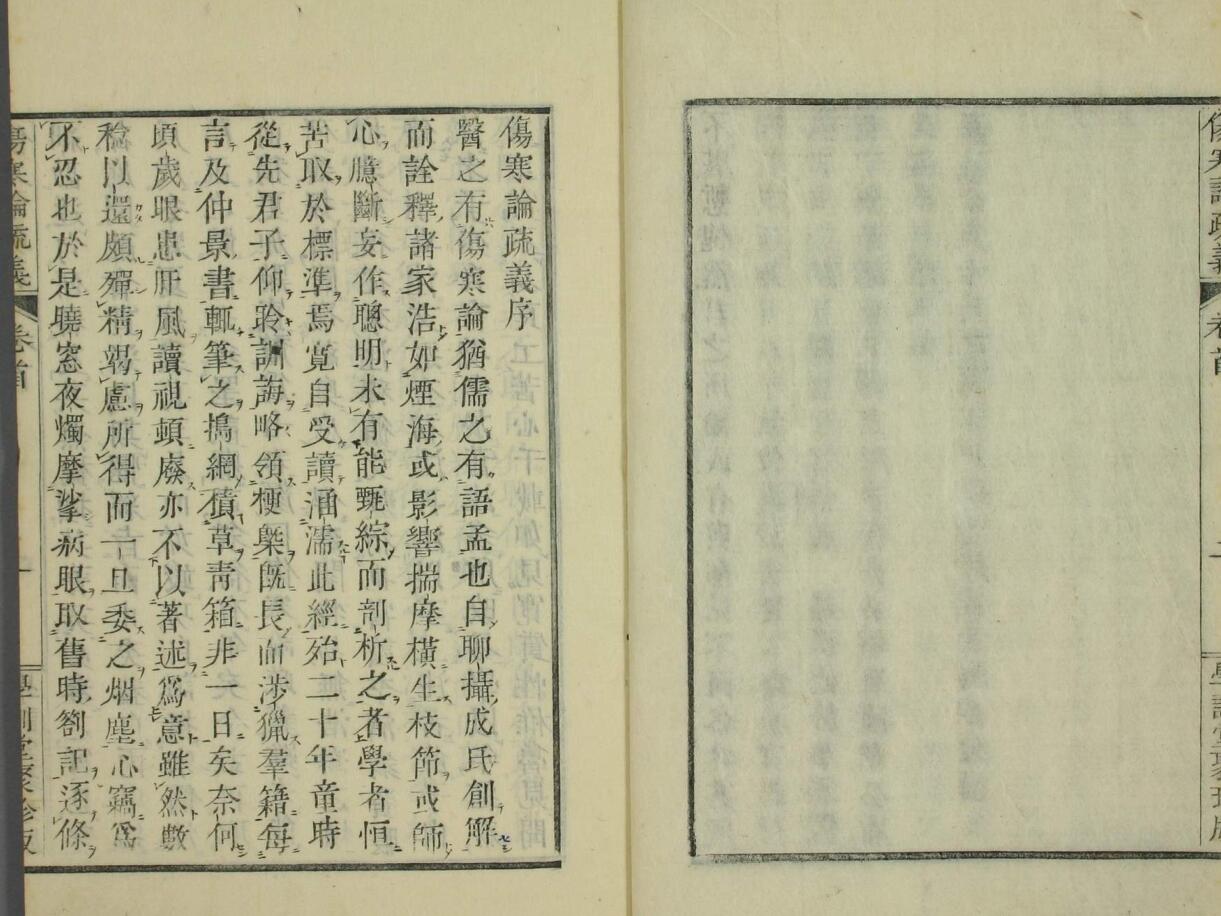 傷寒論疏義序
醫之有傷寒論猶儒之有語孟也自聊攝成氏創解
而詮釋諸家浩如煙海或影響揣摩橫生枝節或師
心臆斷妄作聰明未有能甄綜而剖析之者學者恒
苦取於標準焉寬自受讀涵濡此經殆二十年童時
從先君子仰聆訓誨略領梗槩旣長而涉獵羣籍每
言及仲景書輒筆之搗網積草靑箱非一日矣奈何
頃歲眼患肝風讀視頓廢亦不以著述爲意雖然數
稔以還頗殫精竭慮所得而一旦委之烟塵心竊爲
不忍也於是曉窓夜燭摩挲病眼取舊時劄記逐條
傷寒論疏義
卷首
一
學訓堂聚珍版